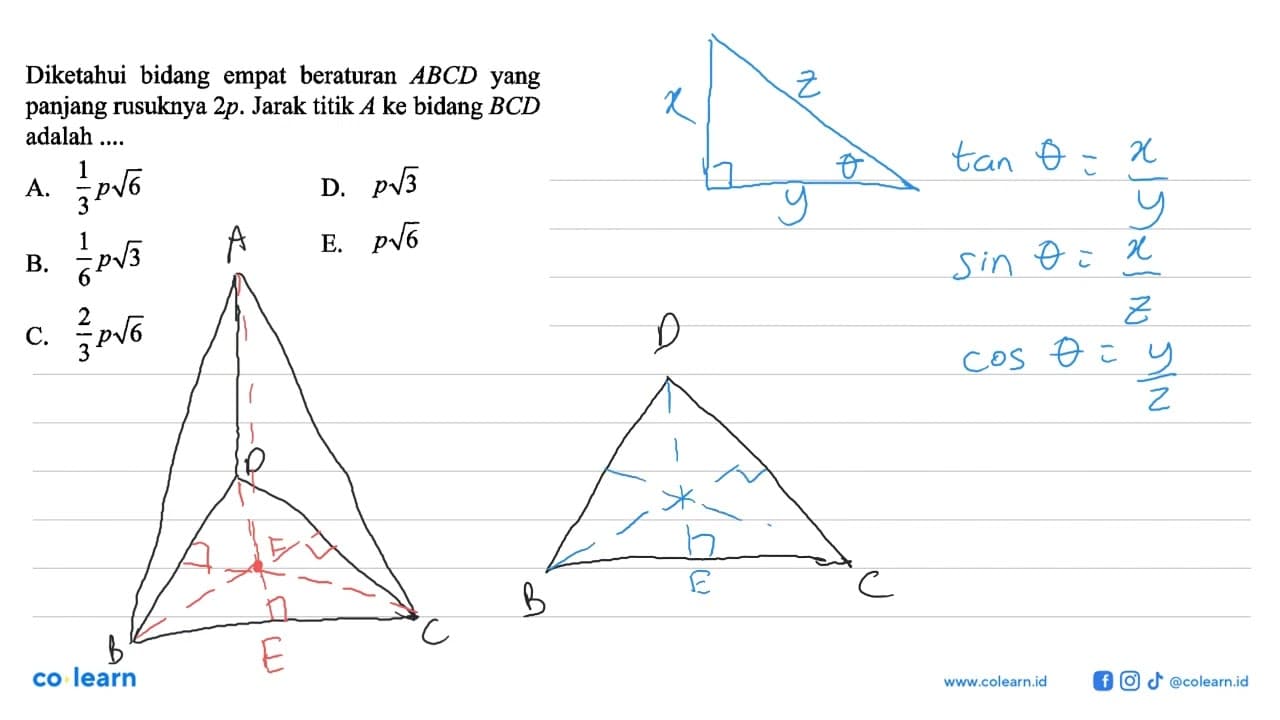 Diketahui bidang empat beraturan ABCD yang
panjang rusuknya 2p. Jarak titik A ke bidang BCD
adalah ....
A. 1/3 p√6
B. 1/6 p√3
C. 2/3 p√6
D. p√3
E. p√6
x
z
θ
y
tan θ = x/y
sin θ = x/z
cos θ = y/z
A
D
E
B
C
E
D
B
C
E
co learn
www.colearn.id
@colearn.id